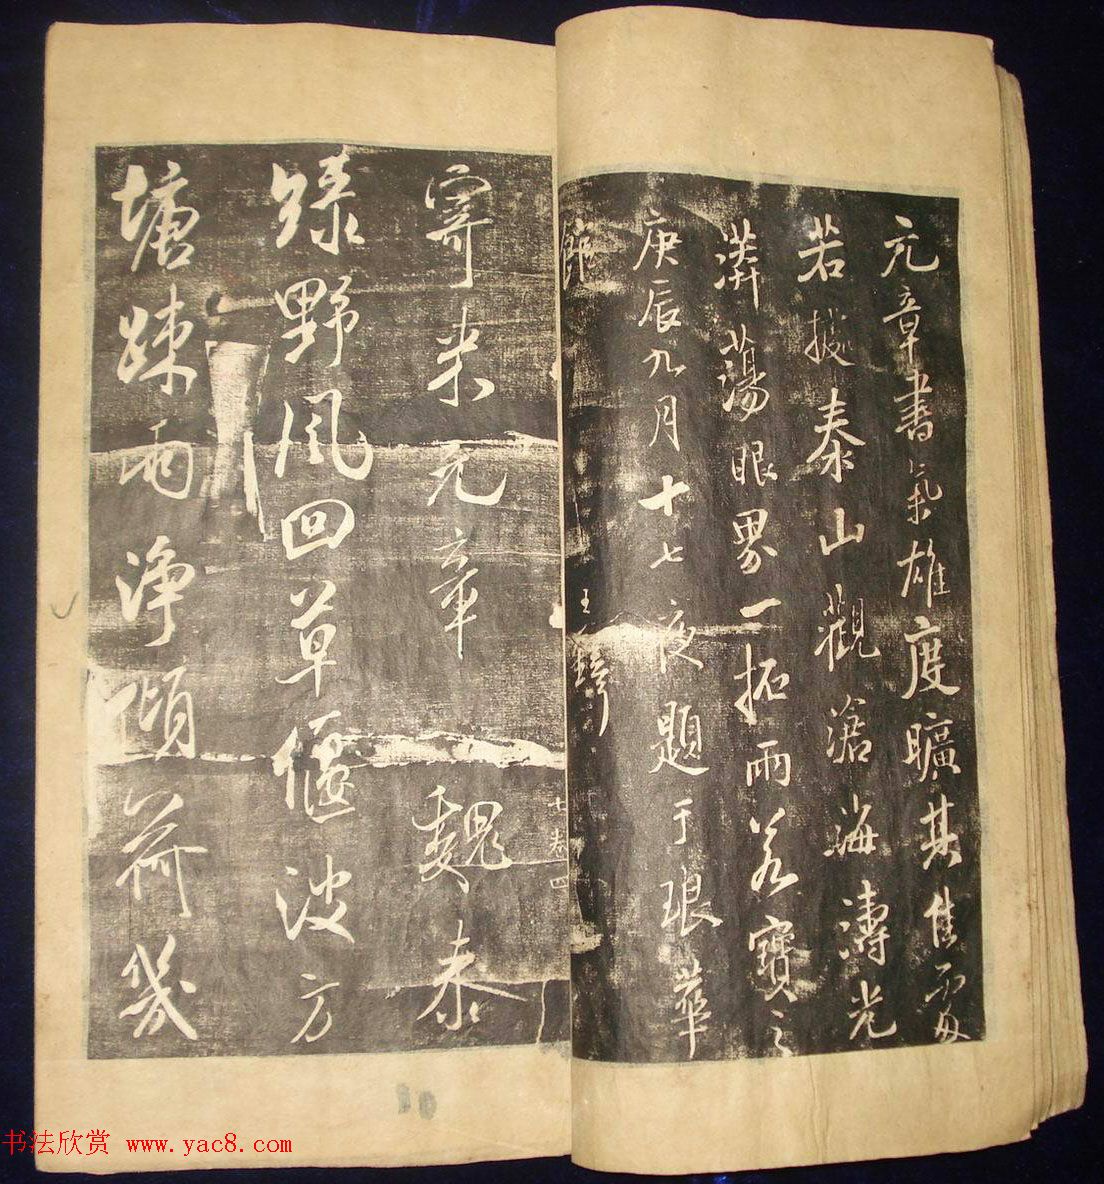 元章書氣雄度曠其佳處
若披泰山觀滄海濤光
漭蕩眼界一拓兩公寶之
庚辰九月十七夜題于琅華
館 王鐸
七卷 四
寄米元章 魏泰
綠野風回草偃波方
塘疎雨淨傾荷幾
10
书法欣赏 www.yac8.com